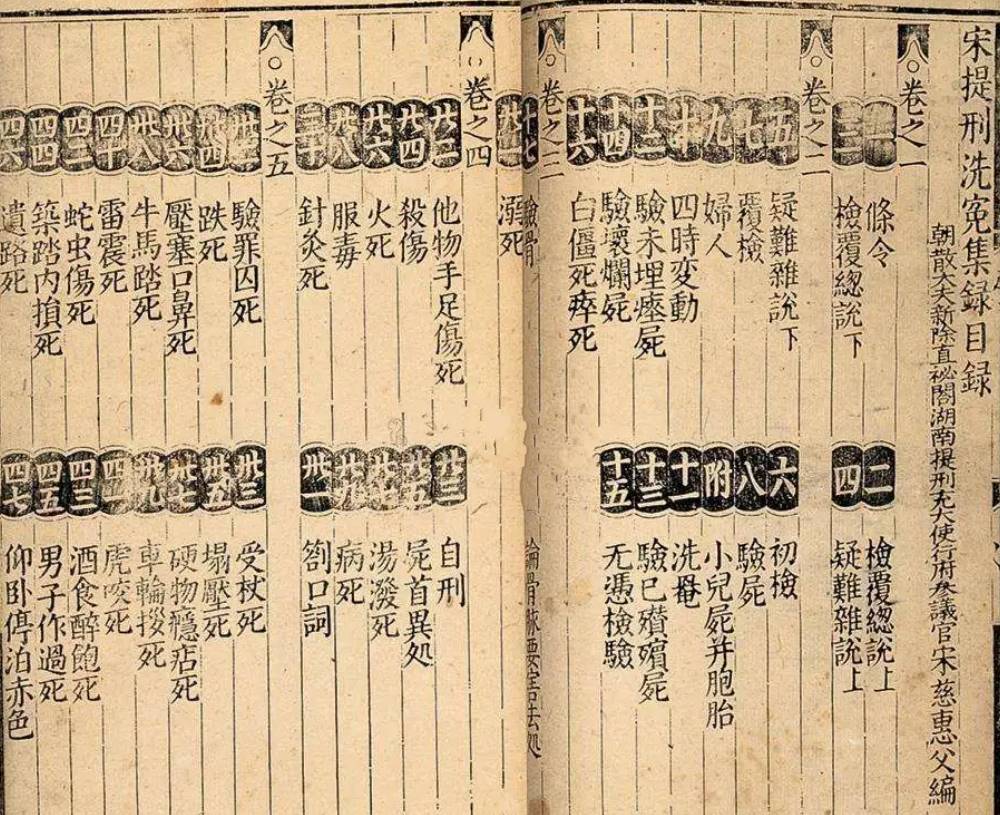 宋提刑洗冤集録目録
朝散大夫新除直祕閣湖南提刑充大使行府叅議官宋慈惠父編
卷之一
一 條令 二 檢覆緫説上
三 檢覆緫説下 四 疑難雜説上
卷之二
五 疑難雜説下 六 初檢
七 覆檢 八 驗屍
九 婦人 附 小兒屍并胞胎
十 四時変動 十一 洗罨
十二 驗未埋瘞屍 十三 驗已殯屍
十四 驗壞爛屍 十五 无憑檢驗
十六 白僵死瘁死
卷之三
十七 驗骨 論骨脉要害去処
溺死
卷之四
廿二 他物手足傷死 廿三 自刑
廿四 殺傷 廿五 屍首異処
廿六 火死 廿七 湯潑死
廿八 服毒 廿九 病死
三十 針灸死 卅一 劄口詞
卷之五
卅二 驗罪囚死 卅三 受杖死
卅四 跌死 卅五 塌壓死
卅六 壓塞口鼻死 卅七 硬物癮痁死
卅八 牛馬踏死 卅九 車輪拶死
四十 雷震死 四一 虎咬死
四二 蛇虫傷死 四三 酒食醉飽死
四四 築踏内損死 四五 男子作過死
四六 遺路死 四七 仰卧停泊赤色